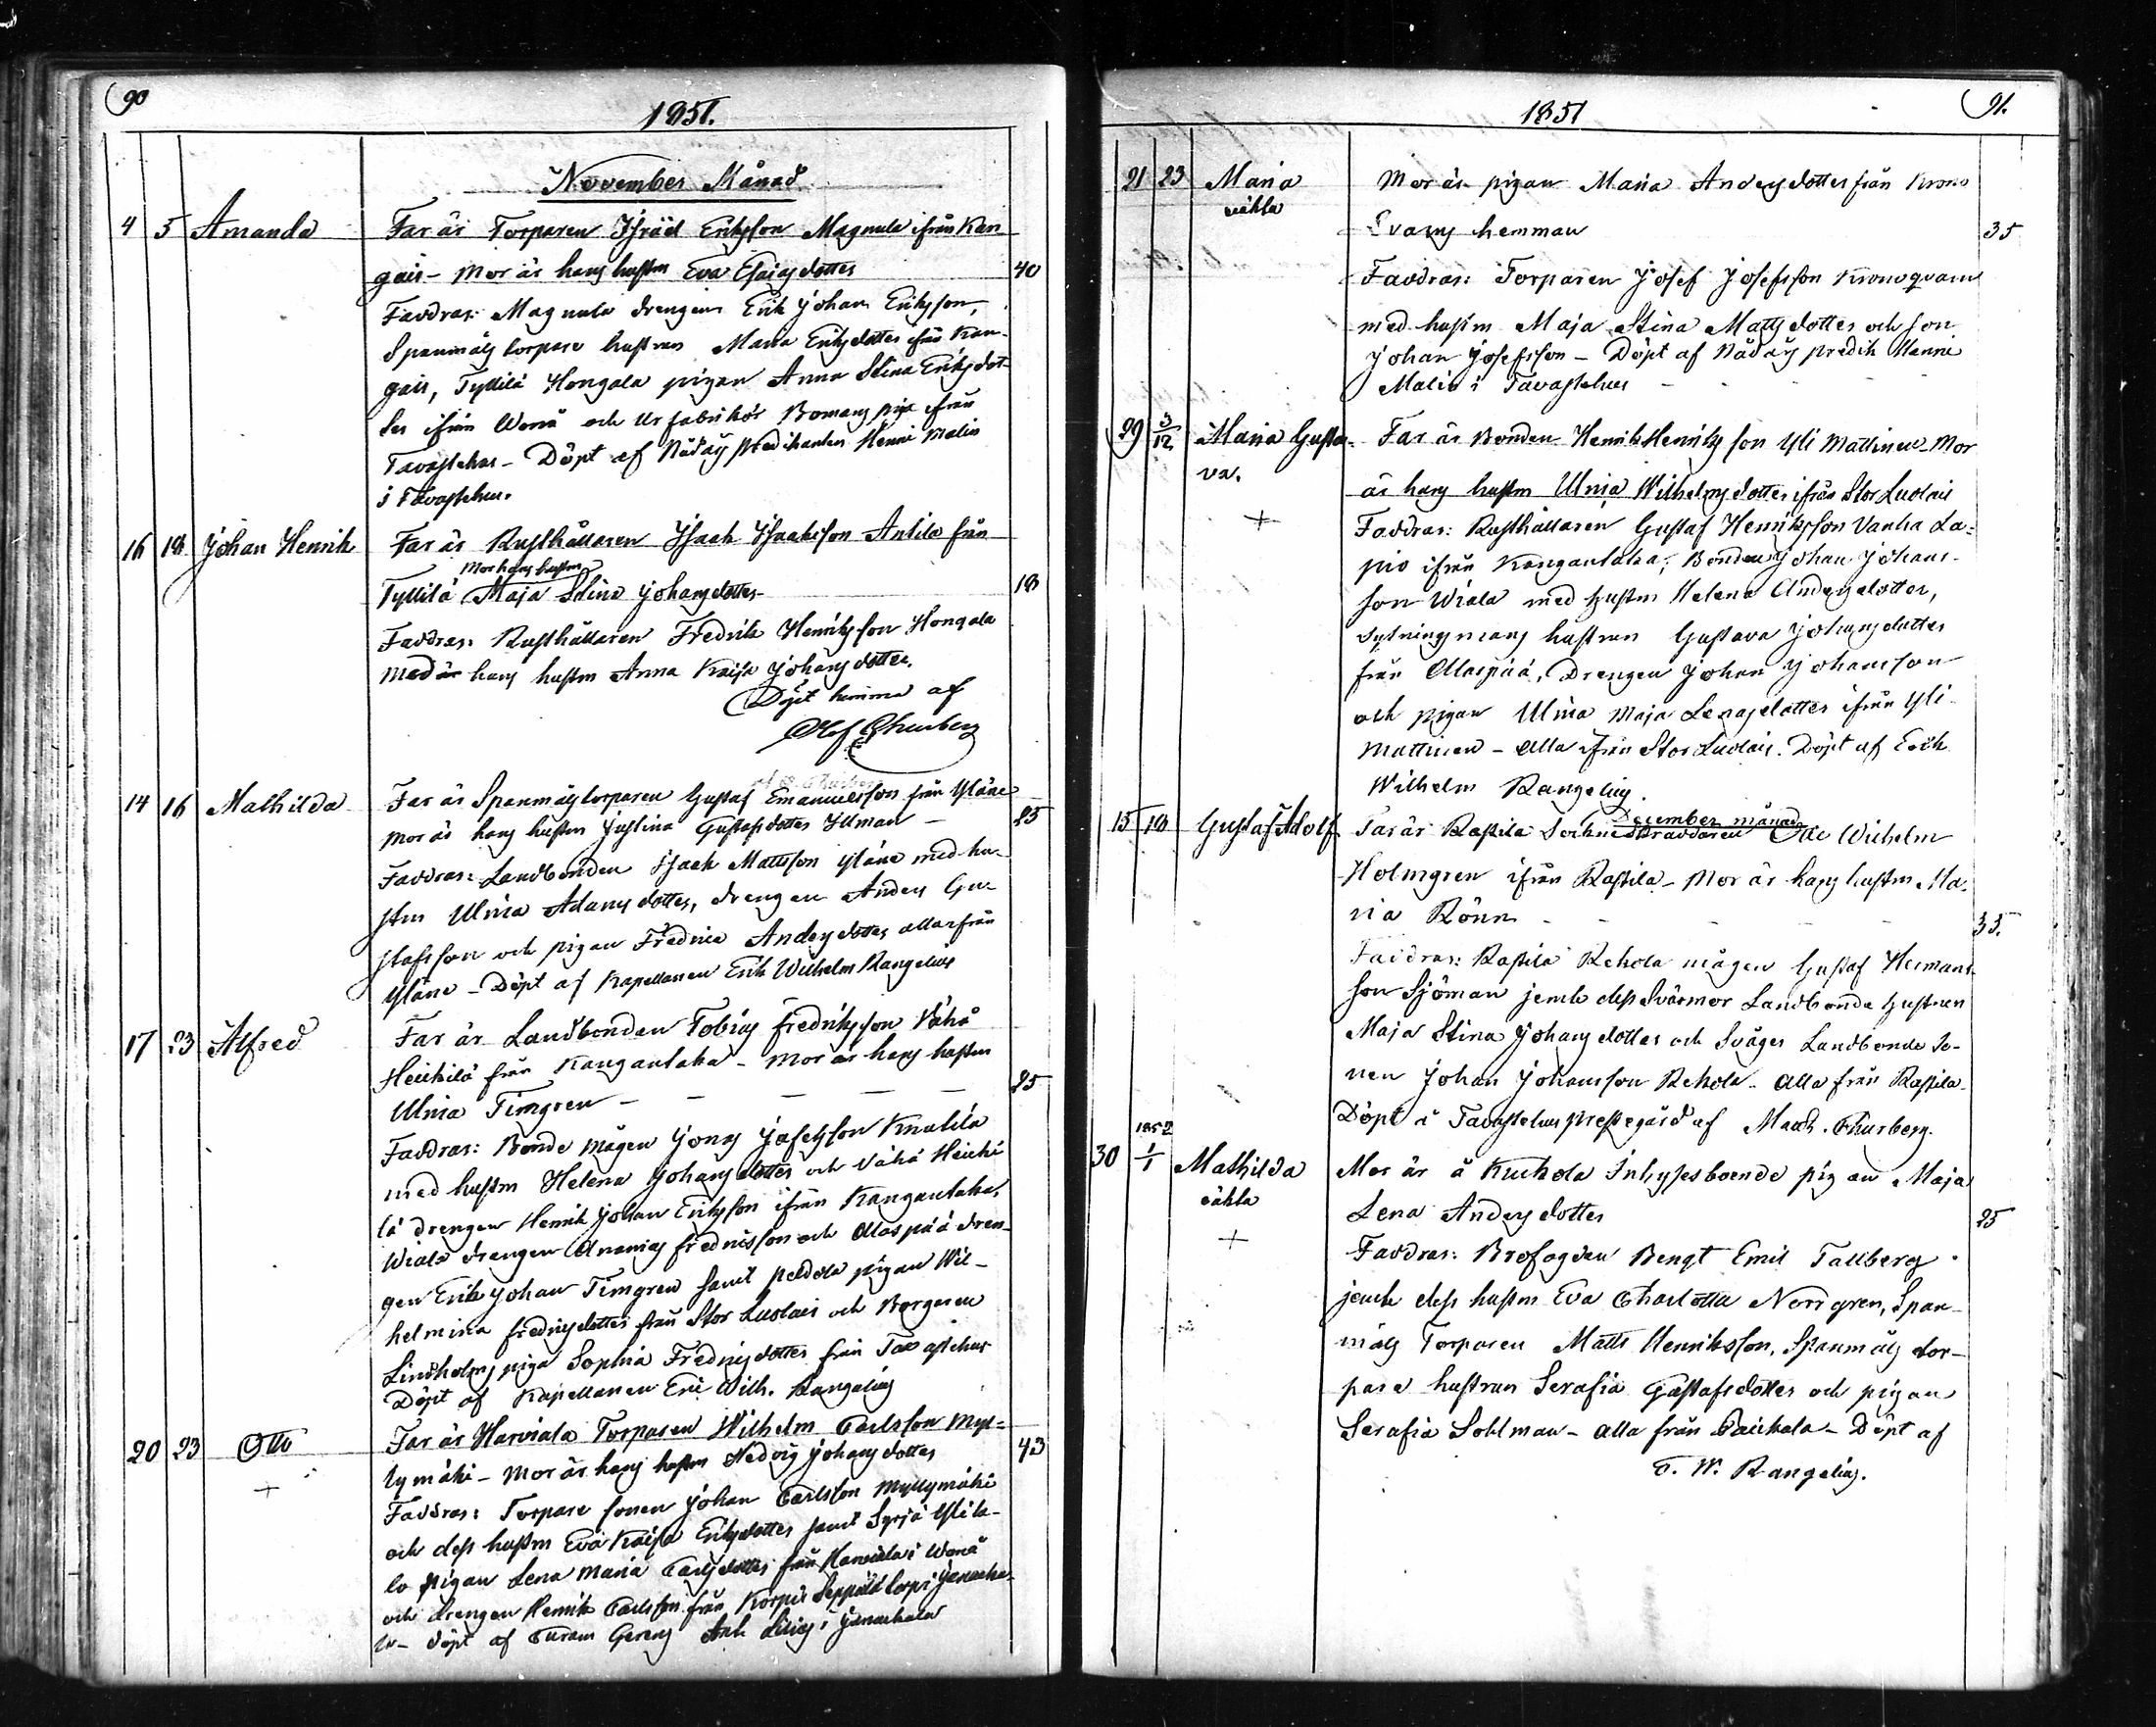 90
1851.
November Månad
4 5 Amanda Far är Torparen Isräel Eriksson Magnula ifrån Kan-
gais - Mor är hans hustru Eva Esaiasdotter 40
Faddrar: Magnula drengen Erik Johan Eriksson,
Spanmåls torpare hustrun Maria Eriksdotter ifrån Kan-
gais, Tyllilä Hongala pigan Anna Stina Eriksdot-
ter ifrån Wånå och Urfabrikör Bomans piga ifrån
Tavastehus - Döpt af Nådårs Predikanten Henric Malin
i Tavastehus.
16 18 Johan Henrik Far är Rusthållaren Isaak Isaaksson Antila från
Mor hans hustru
Tyllilä Maja Stina Johansdotter 18
Faddrar: Rusthållaren Fredrik Henriksson Hongala
med hans hustru Anna Kaisa Johansdotter.
Döpt hemma af
Olof Thurberg
14 16 Mathilda Far är Spanmålstorparen Gustaf Emanuelsson från Yläne
Mor är hans hustru Justina Gustafsdotter Illman - 25
Faddrar: Landbonden Isaak Mattsson Yläne med hu-
stru Ulrica Adamsdotter, drengen Anders Gu-
stafsson och pigan Fredrica Andersdotter alla från
Yläne - Döpt af Kapellanen Erik Wilhelm Rangelius
17 23 Alfred Far är Landbonden Tobias Fredriksson Vähä
Heickilä från Kangantaka - Mor är hans hustru
Ulrica Timgren - - - - 25
Faddrar: Bonde mågen Jonas Josefsson Knutila
med hustru Helena Johansdotter och Vähä Heicki-
lä drengen Henrik Johan Eriksson ifrån Kangantaka,
Wiala drengen Ananias Fredriksson och Allaspää dren-
gen Erik Johan Timgren samt Peldola pigan Wil-
helmina Fredriksdotter från Stor Luolais och Borgaren
Lindholms piga Sophia Fredriksdotter från Tavastehus
Döpt af Kapellanen Eric Wilh. Rangelius
20 23 Otto Far är Harviala Torparen Wilhelm Carlsson Myl-
+ lymäki - Mor är hans hustru Hedvig Johansdotter 43
Faddrar: Torpare sonen Johan Carlsson Myllymäki
och dess hustru Eva Kaisa Eriksdotter samt Syrjä Ylita-
lo pigan Lena Maria Carlsdotter från Harviala i Wånå
och drengen Henrik Carlsson från Korpi Seppälä torp i Janacka-
la - döpt af Curam Gerens Ank Lilius i Janackala
91.
1851
21 23 Maria Mor är pigan Maria Andersdotter från Krono
oäkta
Evars hemman 35
Faddrar: Torparen Josef Josefsson Kronoqvarn
med hustru Maja Stina Mattsdotter och son
Johan Josefsson - Döpt af Nådårs predik Henric
Malin i Tavastehus
29 3/12 Maria Gusta- Far är Bonden Henrik Henriksson Yli Mattinen - Mor
va. är hans hustru Ulrica Wilhelmsdotter ifrån Stor Luolais
+ Faddrar: Rusthållaren Gustaf Henriksson Vanha La-
pio ifrån Kangantaka, Bonden Johan Johans-
son Wiala med hustru Helena Andersdotter,
Sytningsmans hustrun Gustava Johansdotter
från Allaspää, Drengen Johan Johansson
och pigan Ulrica Maja Lenasdotter ifrån Yli-
Mattinen - Alla ifrån Stor Luolais. Döpt af Erik
Wilhelm Rangelius.
December månad
15 18 Gustaf Adolf Far är Rastila Sockneskräddaren Otto Wilhelm
Holmgren ifrån Rastila - Mor är hans hustru Ma-
ria Rönn 35.
Faddrar: Rastila Rehola mågen Gustaf Hermans-
son Sjöman jemte dess Svärmor Landbonde hustrun
Maja Stina Johansdotter och Svåger Landbonde so-
nen Johan Johansson Rehola - Alla från Rastila
Döpt i Tavastehus prestegård af Thurberg.
1852
30 1/1 Mathilda Mor är å Kuckola Inhysesboende pigan Maja
oäkta Lena Andersdotter 25
+ Faddrar: Brofogden Bengt Emil Tallberg
jemte dess hustru Eva Charlotta Norrgren, Span-
måls Torparen Matts Henriksson, Spanmåls tor-
pare hustrun Serafia Gustafsdotter och pigan
Serafia Sohlman - alla från Paickala - Döpt af
E. W. Rangelius.